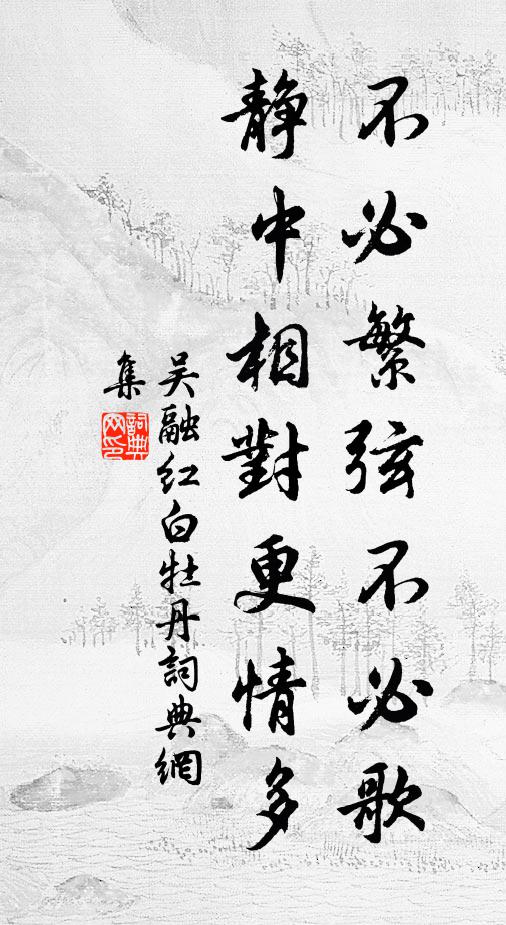 不必繁弦不必歌
静中相對更情多
吴融红白牡丹詞典網
集
詞典
网印